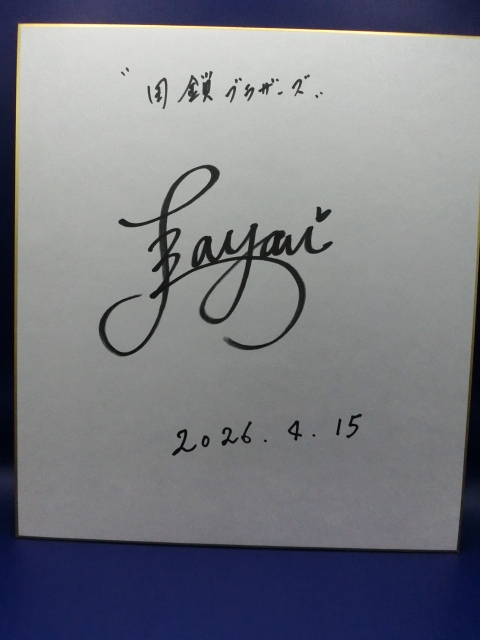 〝田鎖ブラザーズ〟
2026.4.15